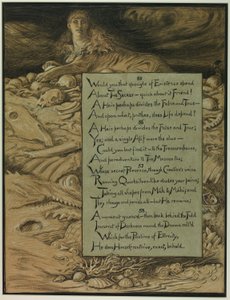 Would you that spangle of Existence spend
About The Secret — quick about it Friend!
A Hair perhaps divides the False and True —
And upon what, prithee, does Life depend?
A Hair perhaps divides the False and True;
Yes; and a single Alif were the clue —
Could you but find it — to the Treasure-house,
And peradventure to The Master too;
Whose secret Presence, through Creation's veins
Running Quicksilver-like eludes your pains;
Taking all shapes from Máh to Máhi; and
They change and perish all — but He remains;
A moment guess'd — then back behind the Fold
Immerst of Darkness round the Drama roll'd
Which for the Pastime of Eternity,
He does Himself contrive, enact, behold.